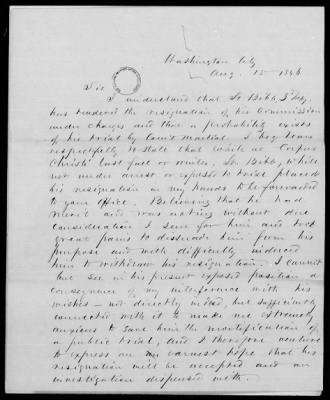 Washington City
Aug. 15 1846
Sir
I understand that Lt Bibb, 3d Infy,
has tendered the resignation of his Commission
under charges and that a probability exists
of his trial by Court Martial. I beg leave
respectfully to state that while at Corpus
Christi last fall or winter, Lt. Bibb, while
not under arrest or exposed to trial placed
his resignation in my hands to be forwarded
to your office. Believing that he had
merit and was acting without due
consideration I sent for him and took
great pains to dissuade him from his
purpose and with difficulty induced
him to withdraw his resignation. I cannot
but see in his present exposed position a
consequence of my interference with his
wishes — not directly indeed, but sufficiently
connected with it to make me extremely
anxious to save him the mortification of
a public trial, and I therefore venture
to express an earnest hope that his
resignation will be accepted and an
investigation dispensed with.